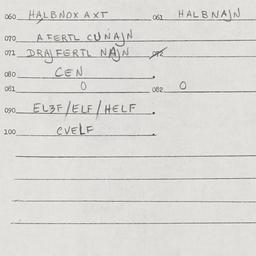 060 HALBNOX AXT 061 HALBNAJN
070 A FERTL CUNAJN
071 DRAJFERTL NAJN 072
080 CEN
081 O 082 O
090 ELƷF/ELF/HELF
100 CVELF